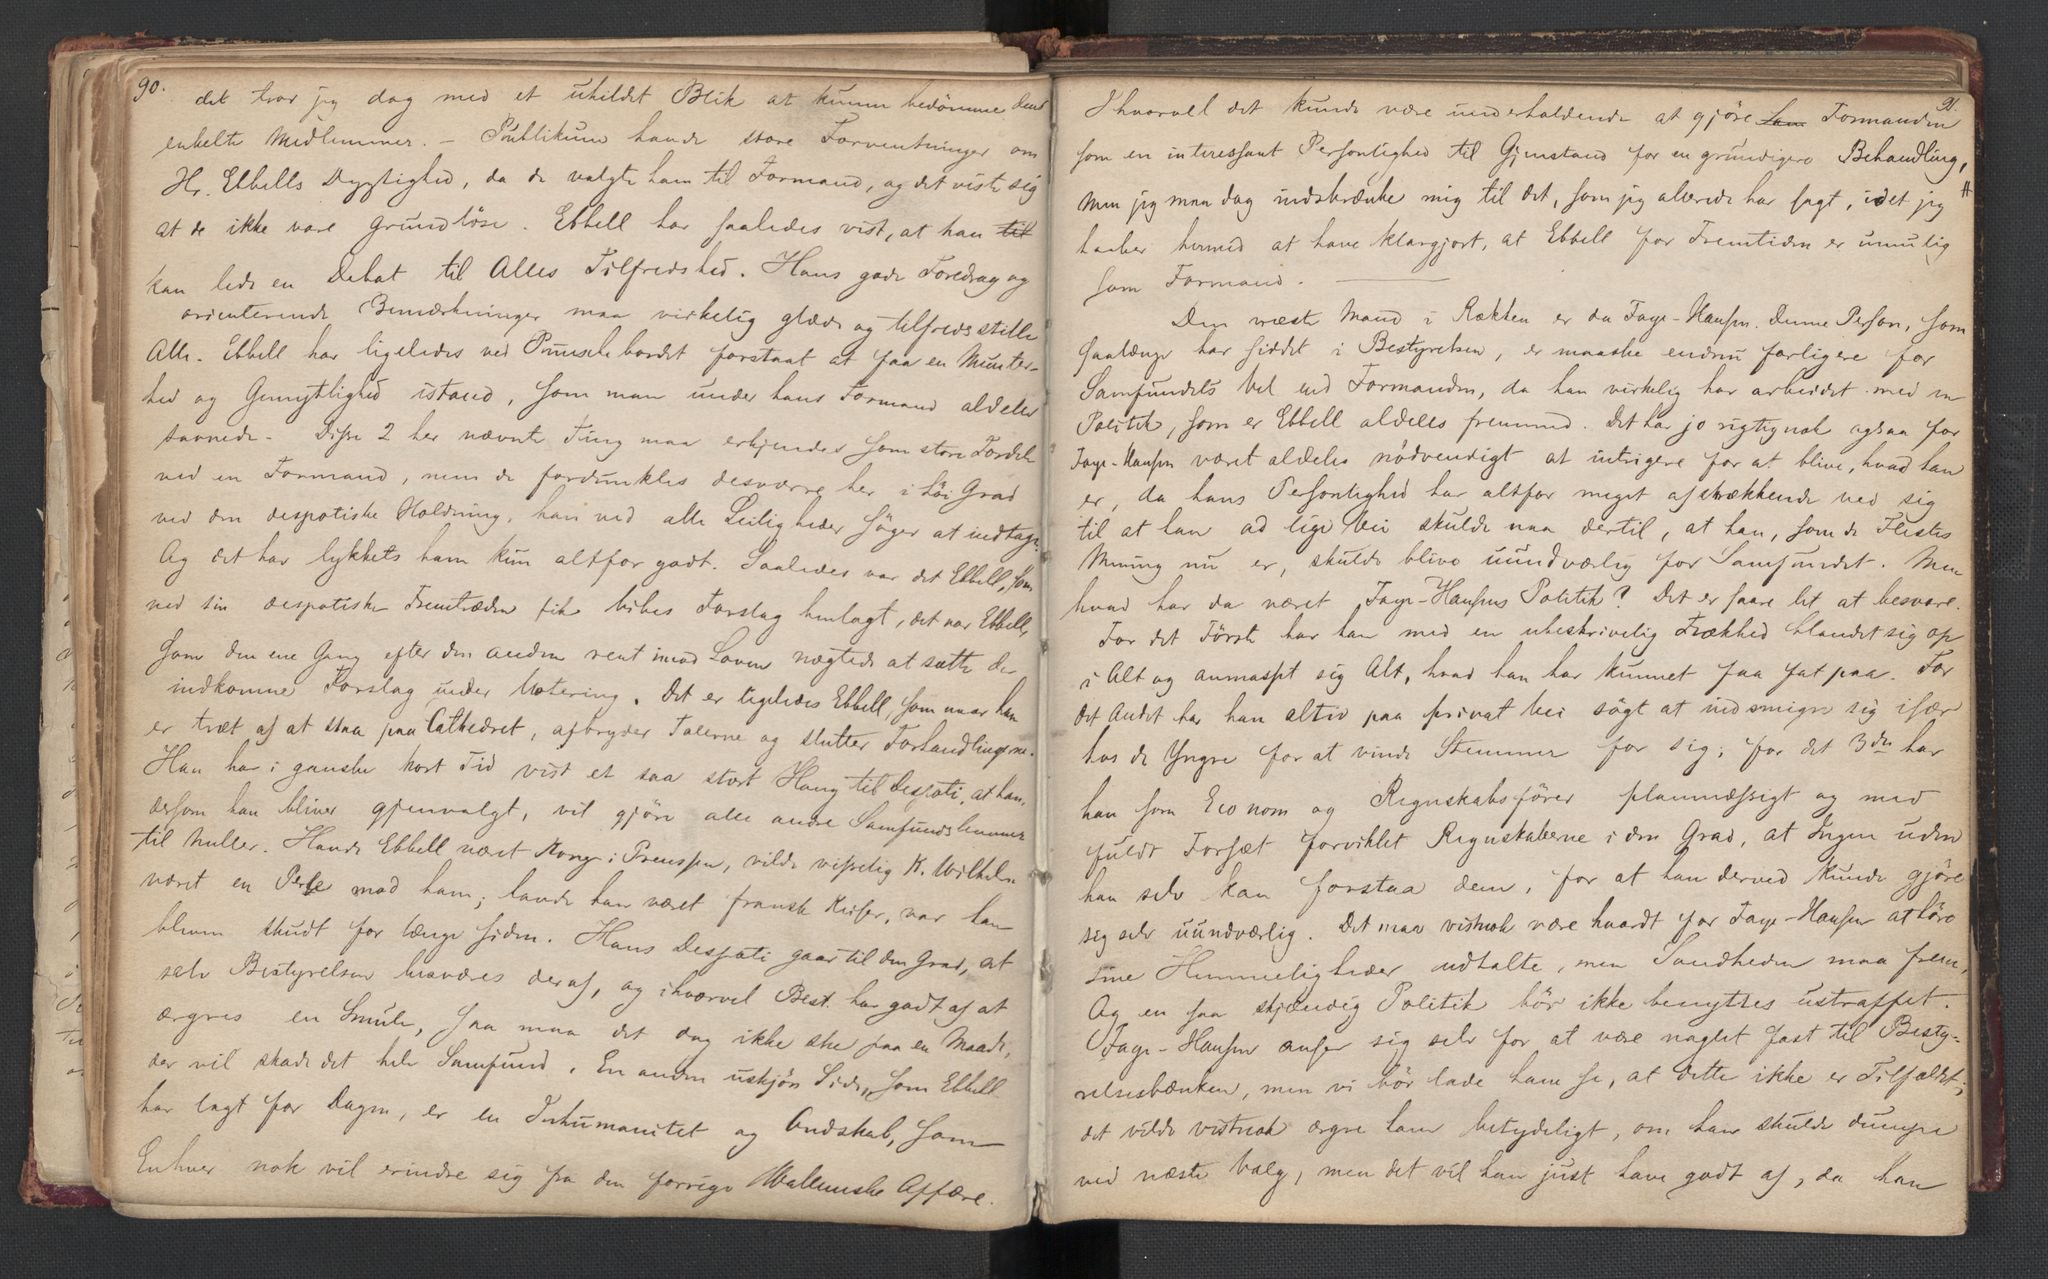 90.
det tror jeg dog med et uhildet Blik at kunne bedømme dens
enkelte Medlemmer. – Publikum havde store Forventninger om
Hr. Ebbells Dygtighed, da de valgte ham til Formand, og det viste sig
at de ikke vare grundløse. Ebbell har saaledes vist, at han til
kan lede en Debat til Alles Tilfredshed. Hans gode Foredrag og
orienterende Bemærkninger maa virkelig glæde og tilfredsstille
Alle. Ebbell har ligeledes ved Punschebordet forstaaet at faa en Munter-
hed og Gemytlighed istand, som man under hans Formand aldeles
savnede. Disse 2 her nævnte Ting maa erkjendes som store Fordele
ved en Formand, men de fordunkles desværre her i høi Grad
ved den despotiske Holdning, han ved alle Leiligheder søger at indtage.
Og det har lykkets ham kun altfor godt. Saaledes var det Ebbell, som
ved sin despotiske Fremtræden fik Vibes Forslag henlagt, det var Ebbell,
som den ene Gang efter den anden rent imod Loven nægtede at sætte de
indkomne Forslag under Votering. Det er ligeledes Ebbell, som naar han
er træt af at staa paa Cathedret, afbryder Talerne og slutter Forhandlingerne.
Han har i ganske kort Tid vist et saa stort Hang til Despoti, at han,
dersom han bliver gjenvalgt, vil gjøre alle andre Samfundslemmer
til Nuller. Havde Ebbell været Konge i Preussen, vilde visselig K. Wilhelm
været en Perle mod ham; havde han været fransk Keiser, var han
bleven skudt for længe siden. Hans Despoti gaar til den Grad, at
selv Bestyrelsen besværes deraf, og ihvorvel Best. har godt af at
ærgres en Smule, saa maa det dog ikke ske paa en Maade,
der vil skade det hele Samfund. En anden uskjøn Side, som Ebbell
har lagt for Dagen, er en Inhumanitet og Ondskab, som
Enhver nok vil erindre sig fra den forrige Wallemske Affære.
91.
Ihvorvel det kunde være underholdende at gjøre Formanden
som en interessant Personlighed til Gjenstand for en grundigere Behandling,
men jeg maa dog indskrænke mig til det, som jeg allerede har sagt, idet jeg
haaber hermed at have klargjort, at Ebbell for Fremtiden er umulig
som Formand.
Den næste Mand i Rækken er da Faye-Hansen. Denne Person, som
saalænge har siddet i Bestyrelsen, er maaske endnu farligere for
Samfundets Vel end Formanden, da han virkelig har arbeidet med en
Politik, som er Ebbell aldeles fremmed. Det har jo rigtignok ogsaa for
Faye-Hansen været aldeles nødvendigt at intrigere for at blive, hvad han
er, da hans Personlighed har altfor meget afskrækkende ved sig
til at han ad lige Vei skulde naa dertil, at han, som de Flestes
Mening nu er, skulde blive uundværlig for Samfundet. Men
hvad har da været Faye-Hansens Politik? Det er saare let at besvare.
For det Første har han med en ubeskrivelig Frækhed blandet sig op
i Alt og anmasset sig Alt, hvad han har kunnet faa fat paa. For
det Andet har han altid paa privat Vei søgt at indsmigre sig især
hos de Yngre for at vinde Stemmer for sig; for det 3die har
han som Econom og Regnskabsfører planmæssigt og med
fuldt Forsæt forviklet Regnskaberne i den Grad, at Ingen uden
han selv kan forstaa dem, for at han derved kunde gjøre
sig selv uundværlig. Det maa vistnok være haardt for Faye-Hansen at høre
sine Hemmeligheder udtalte, men Sandheden maa frem,
Og en saa skjændig Politik bør ikke benyttes ustraffet.
Faye-Hansen anser sig selv for at være naglet fast til Besty-
relsesbænken, men vi bør lade ham se, at dette ikke er Tilfældet;
det vilde vistnok ærgre ham betydeligt, om han skulde dumpe
ved næste Valg, men det vil han just have godt af, da han